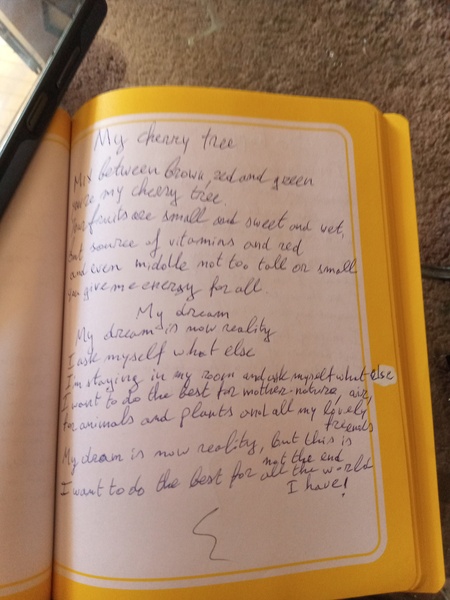 My cherry tree
Mix between brown, red and green
you're my cherry tree.
Your fruits are small and sweet and wet,
but source of vitamins and red
and even middle not too tall or small
you give me energy for all.
My dream
My dream is now reality
I ask myself what else
I'm staying in my room and ask myself what else
I want to do the best for mother nature, air,
for animals and plants and all my lovely
friends
My dream is now reality, but this is
not the end
I want to do the best for all the world
I have!